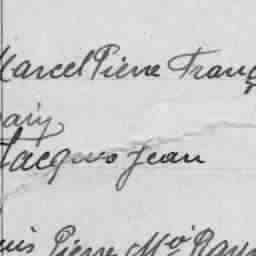 Marcel Pierre Franç
Jacques Jean
uis Pierre Mº Ray